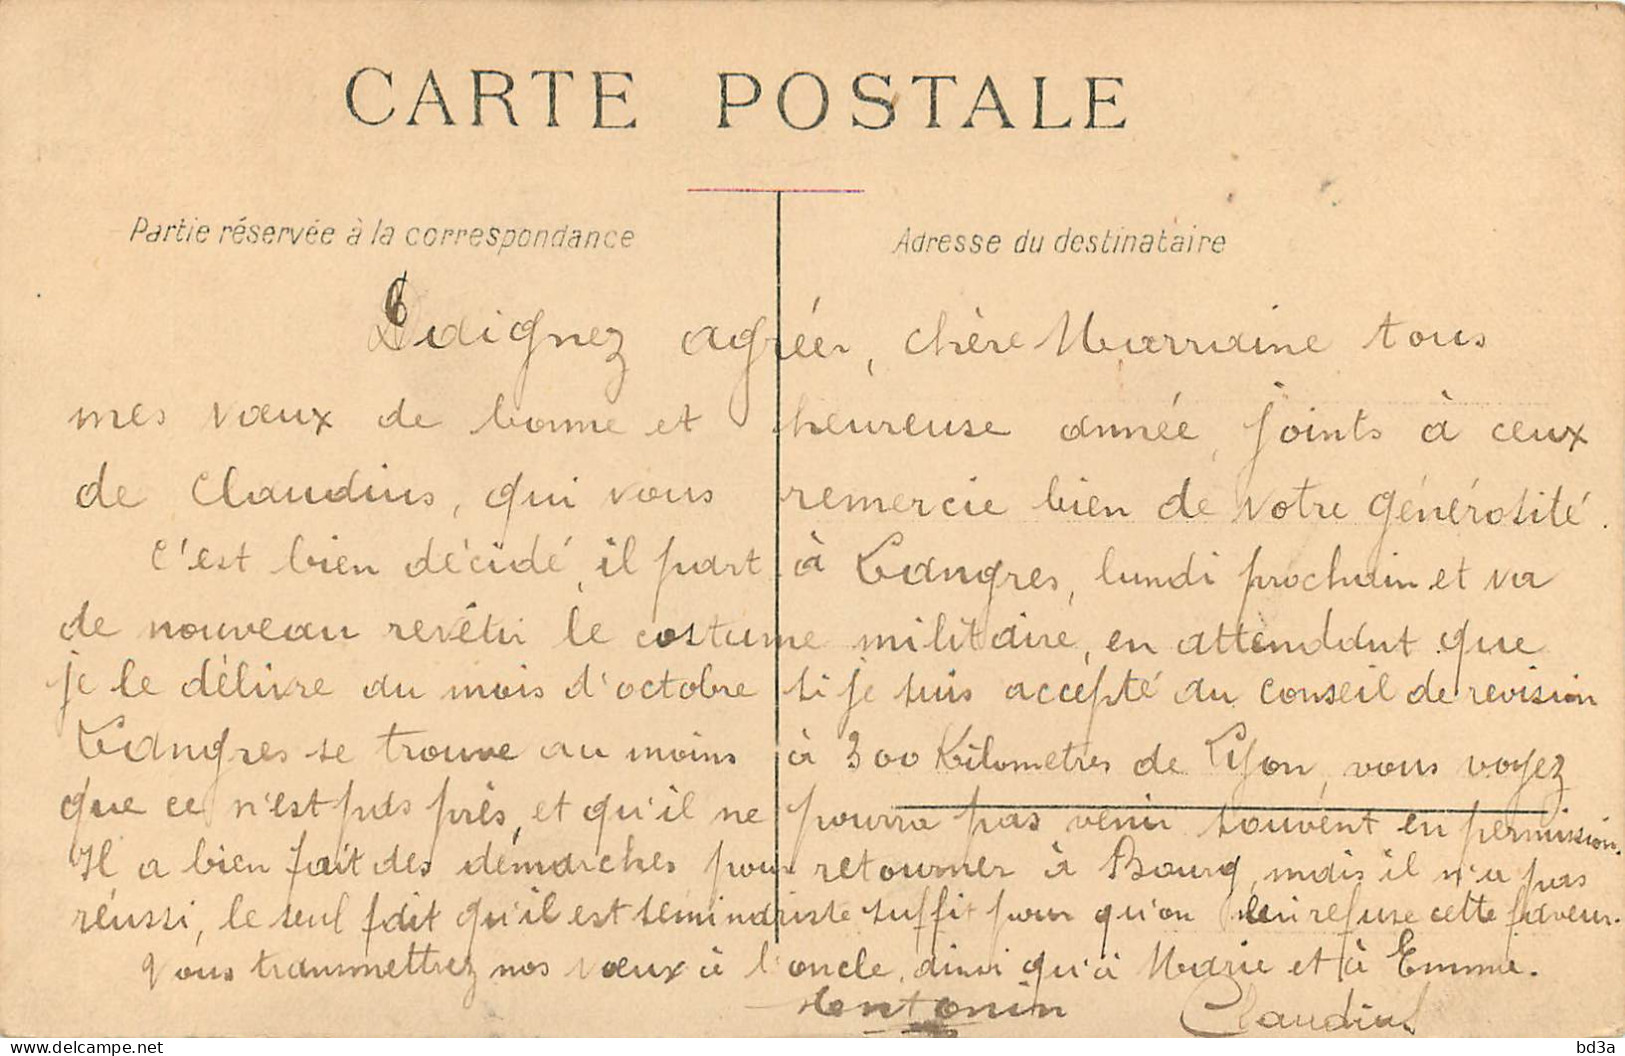 CARTE POSTALE
Partie réservée à la correspondance
Adresse du destinataire
Daignez agréer, chère Marraine tous
mes vœux de bonne et heureuse année, joints à ceux
de Claudius, qui vous remercie bien de votre générosité.
C'est bien décidé, il part à Langres, lundi prochain et va
de nouveau revêtir le costume militaire, en attendant que
je le délivre au mois d'octobre si je suis accepté au conseil de revision
Langres se trouve au moins à 300 Kilometres de Lyon, vous voyez
que ce n'est pas près, et qu'il ne pourra pas venir souvent en permission.
Il a bien fait des démarches pour retourner à Bourg, mais il n'a pas
réussi, le seul fait qu'il est séminariste suffit pour qu'on lui refuse cette faveur.
Vous transmettrez nos vœux à l'oncle, ainsi qu'à Marie et à Emma.
Antonin Claudius
bd3a